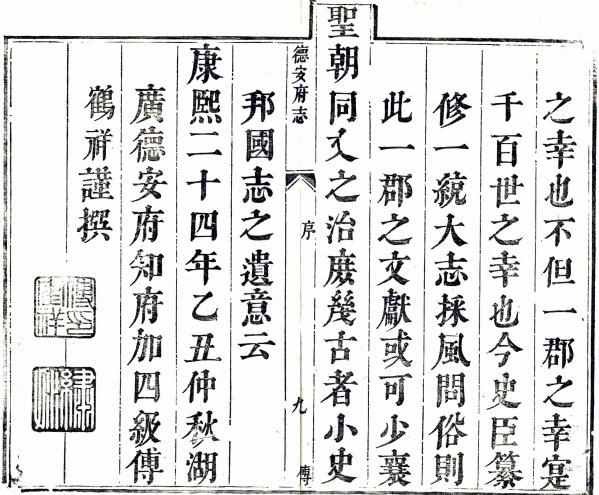 之幸也不但一郡之幸寔
千百世之幸也今史臣纂
修一統大志採風問俗則
此一郡之文獻或可少襄
聖朝同文之治庶幾古者小史
德安府志 序 九 傅
邦國志之遺意云
康熙二十四年乙丑仲秋湖
廣德安府知府加四級傅
鶴祥謹撰